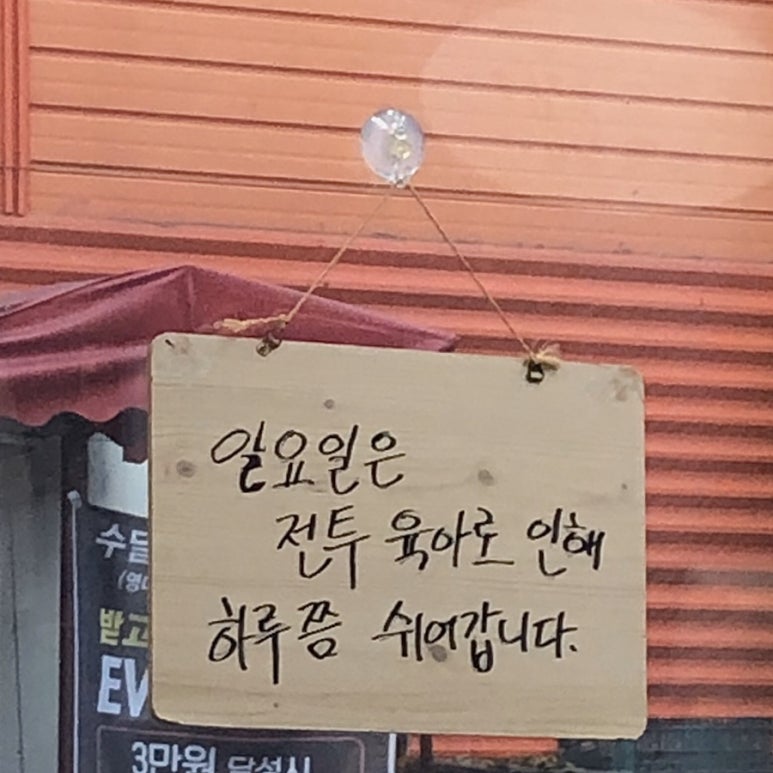 일요일은
전투 육아로 인해
하루쯤 쉬어갑니다.
수달
(영
받고
EV
3만원 달성시